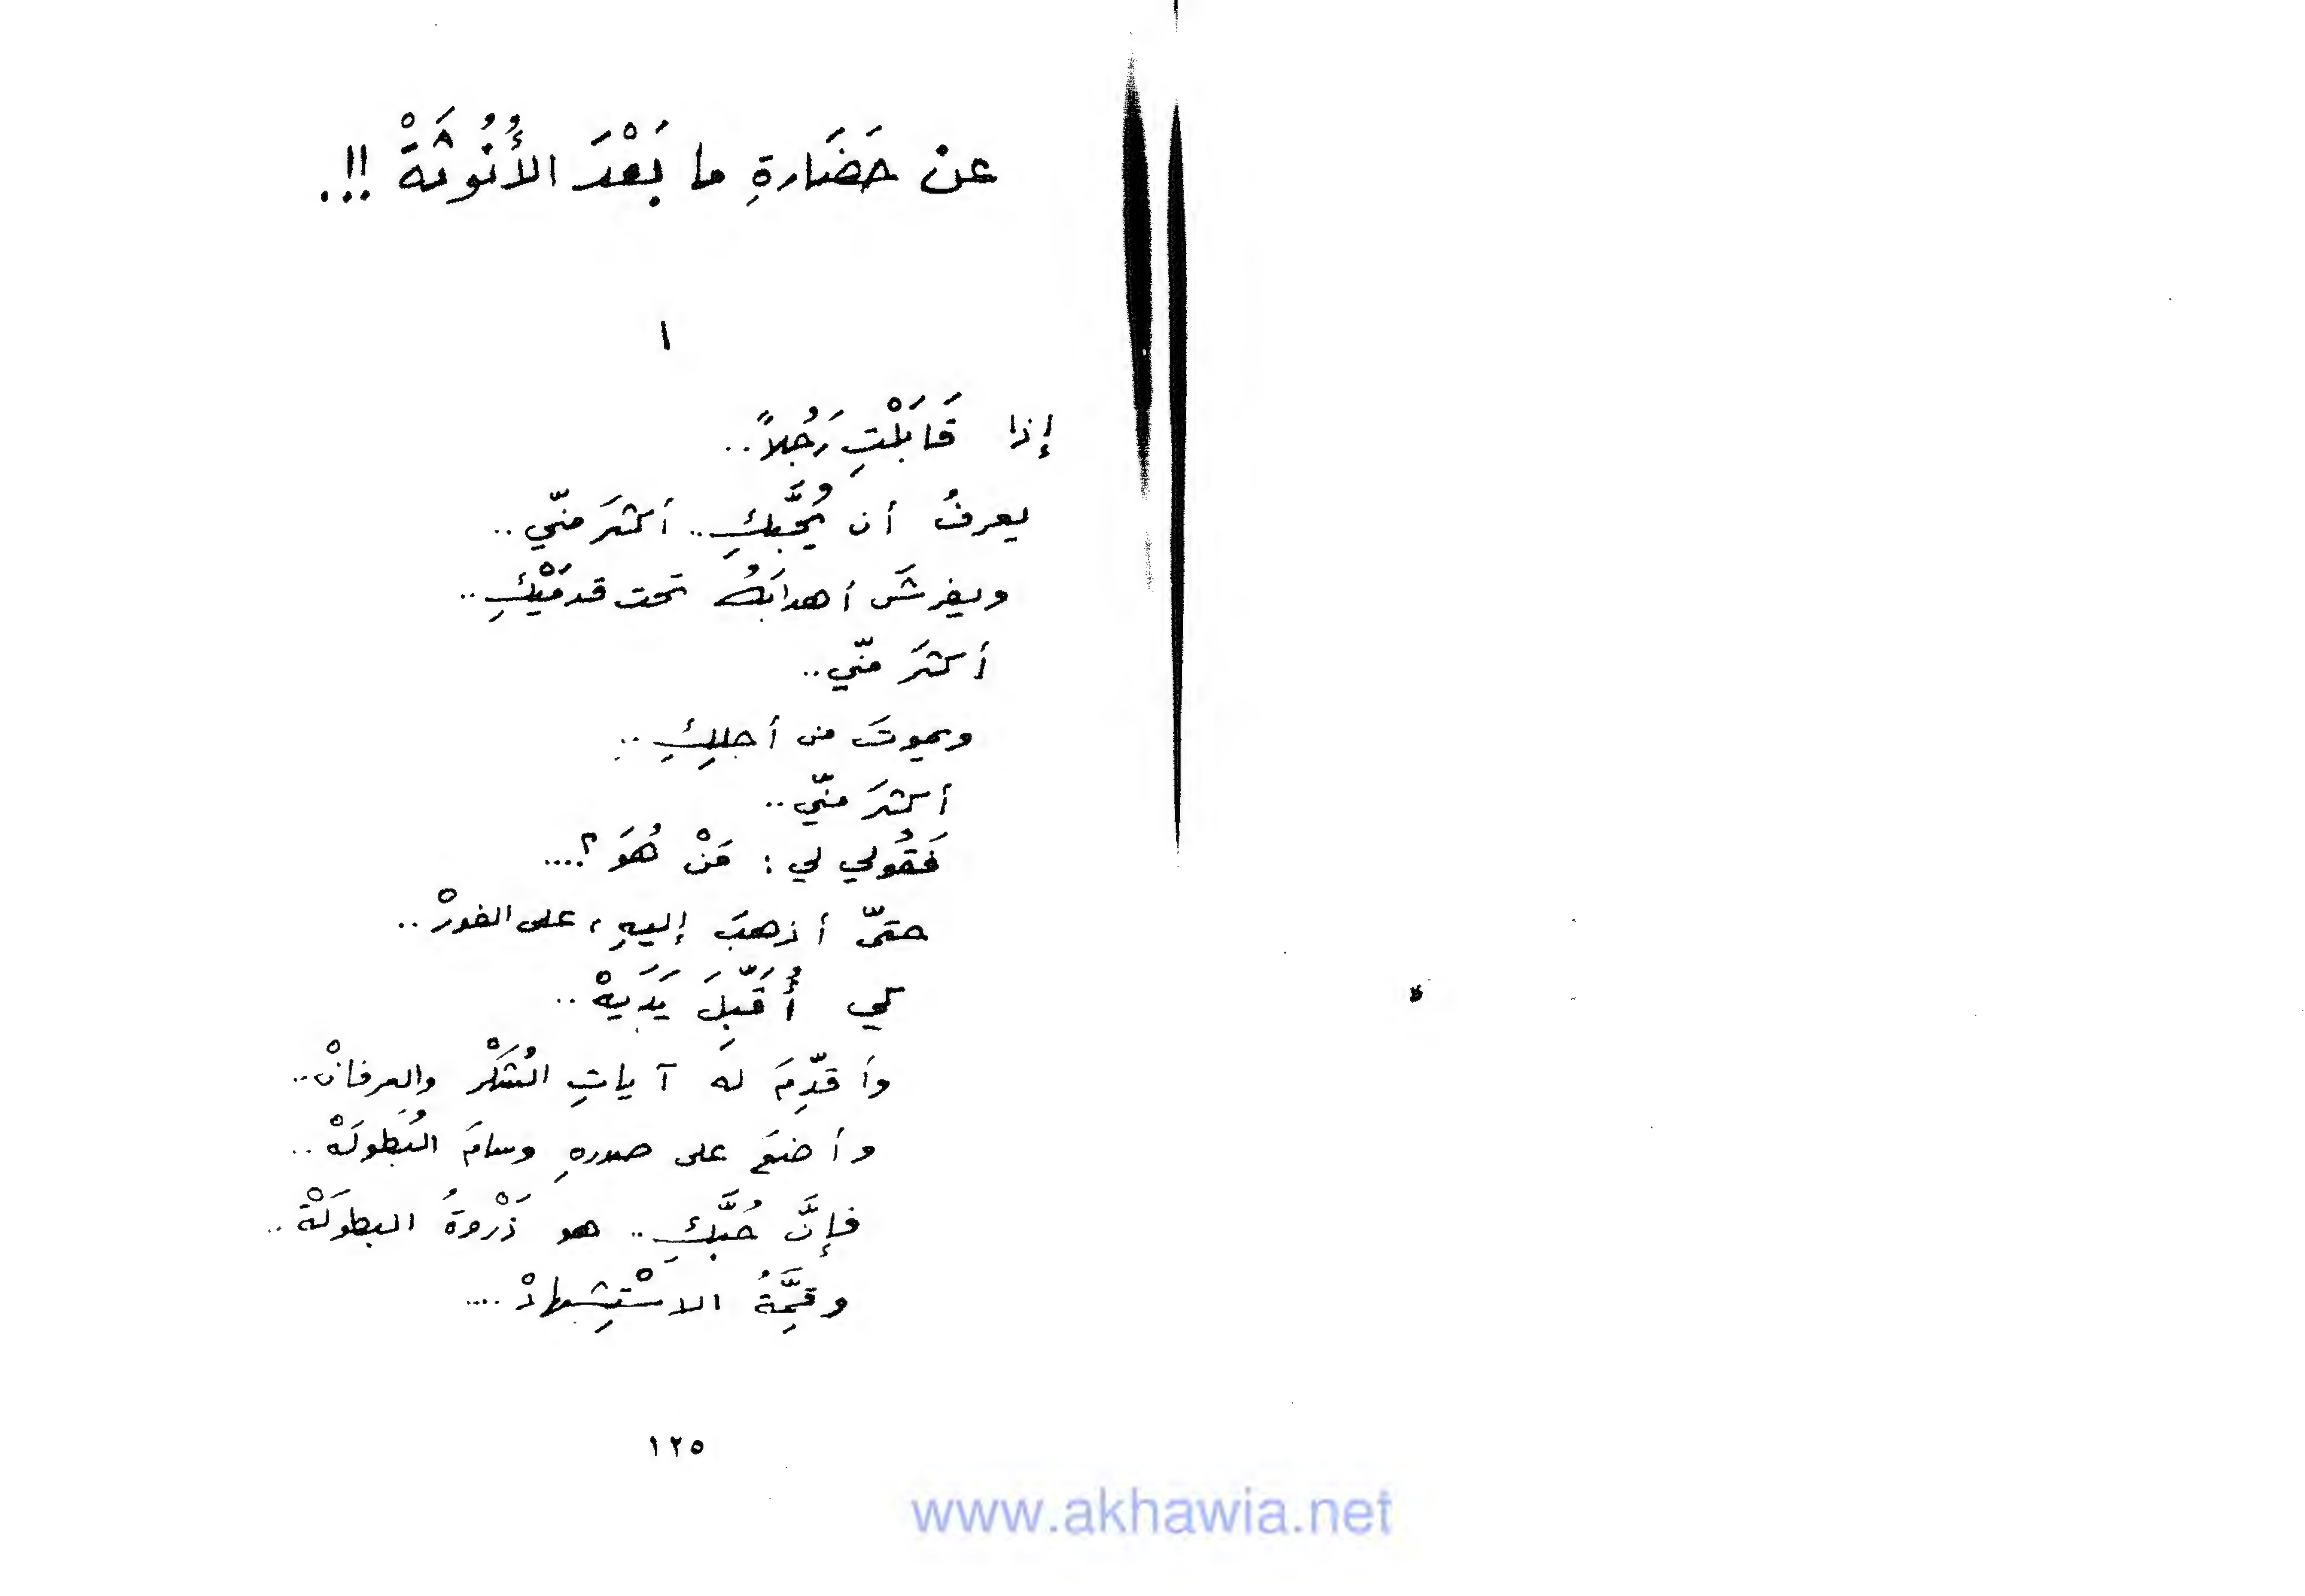 عنْ حَضَارةِ ما بَعْدَ الأُنُوثَةْ !!.
١
إذا قَابَلْتِ رَجُلاً..
يعرفُ أن يُحبَّكِ.. أكثرَ منّي..
ويفرشَ أهدابَهُ تحت قدمَيْكِ..
أكثرَ منّي..
ويموتَ من أجلِكِ..
أكثرَ منّي..
فَقُولي لي : مَنْ هُوَ ؟....
حتّى أذهبَ إليهِ ، على الفورْ..
كي أُقَبِّلَ يَدَيهْ..
وأقدِّمَ له آياتِ الشُكْر والعرفانْ..
وأضعَ على صدرهِ وسامَ البُطولَهْ..
فإنَّ حُبَّكِ.. هو ذَرْوةُ البطولَةْ..
وقِمَّةُ الاسْتِشهادْ....
١٢٥
www.akhawia.net